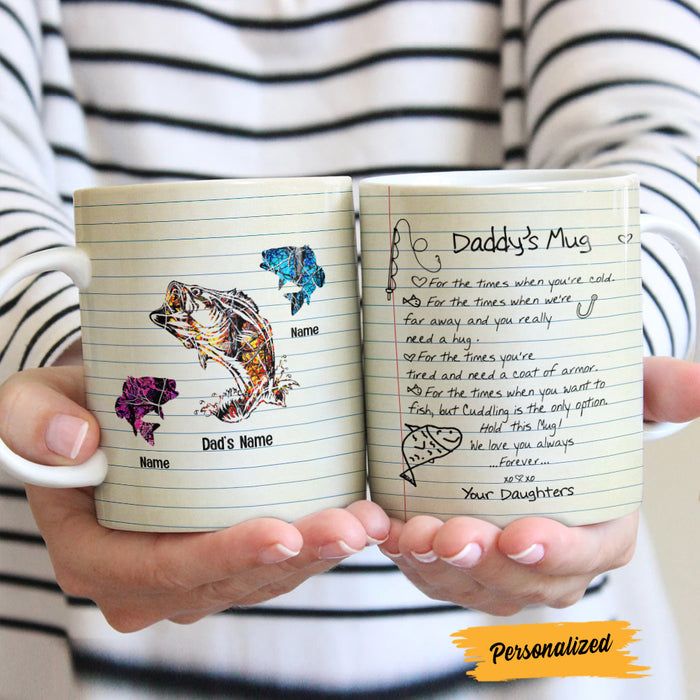 Name
Name
Dad's Name
Daddy's Mug
For the times when you're cold.
For the times when we're
far away and you really
need a hug.
For the times you're
tired and need a coat of armor.
For the times when you want to
fish, but Cuddling is the only option.
Hold this Mug!
We love you always
...Forever...
xo♡xo
Your Daughters
Personalized